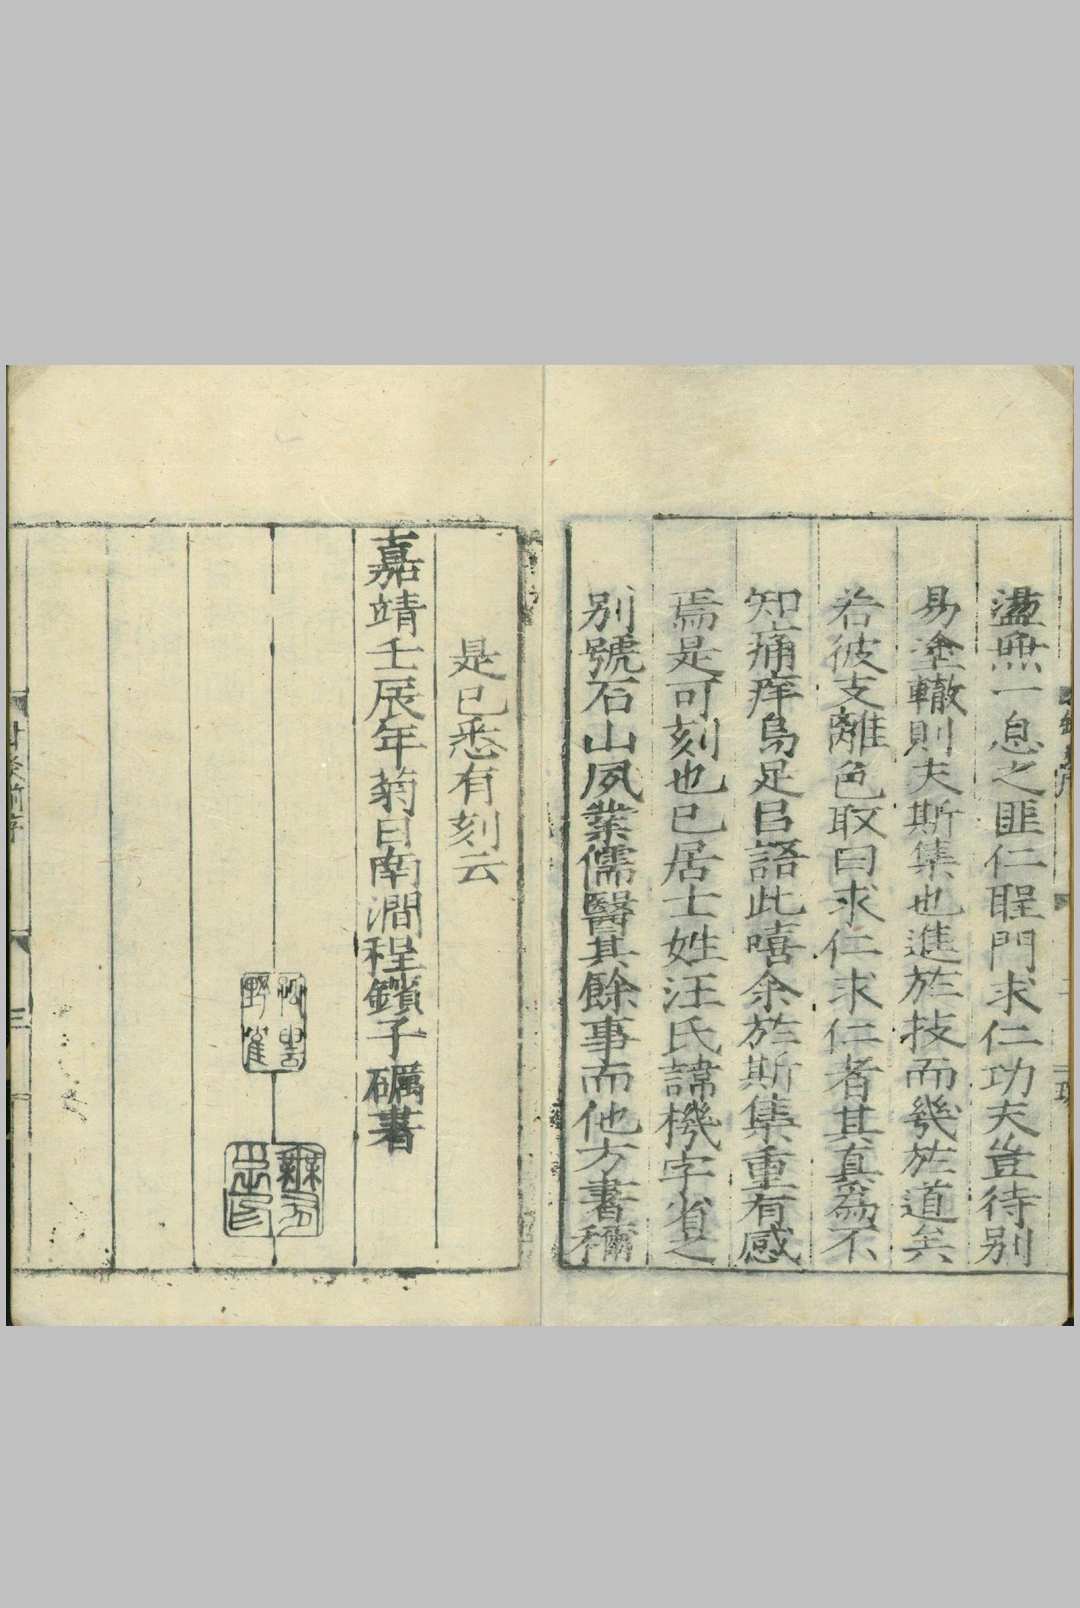 盪無一息之匪仁聖門求仁功夫豈待别
易塗轍則夫斯集也進於技而幾於道矣
若彼支離色取曰求仁求仁者其真爲不
知痛痒烏足㠯語此嘻余於斯集重有感
焉是可刻也已居士姓汪氏諱機字省之
别號石山夙業儒醫其餘事而他方書稱
是已悉有刻云
嘉靖壬辰年菊日南澗程鏆子礪書